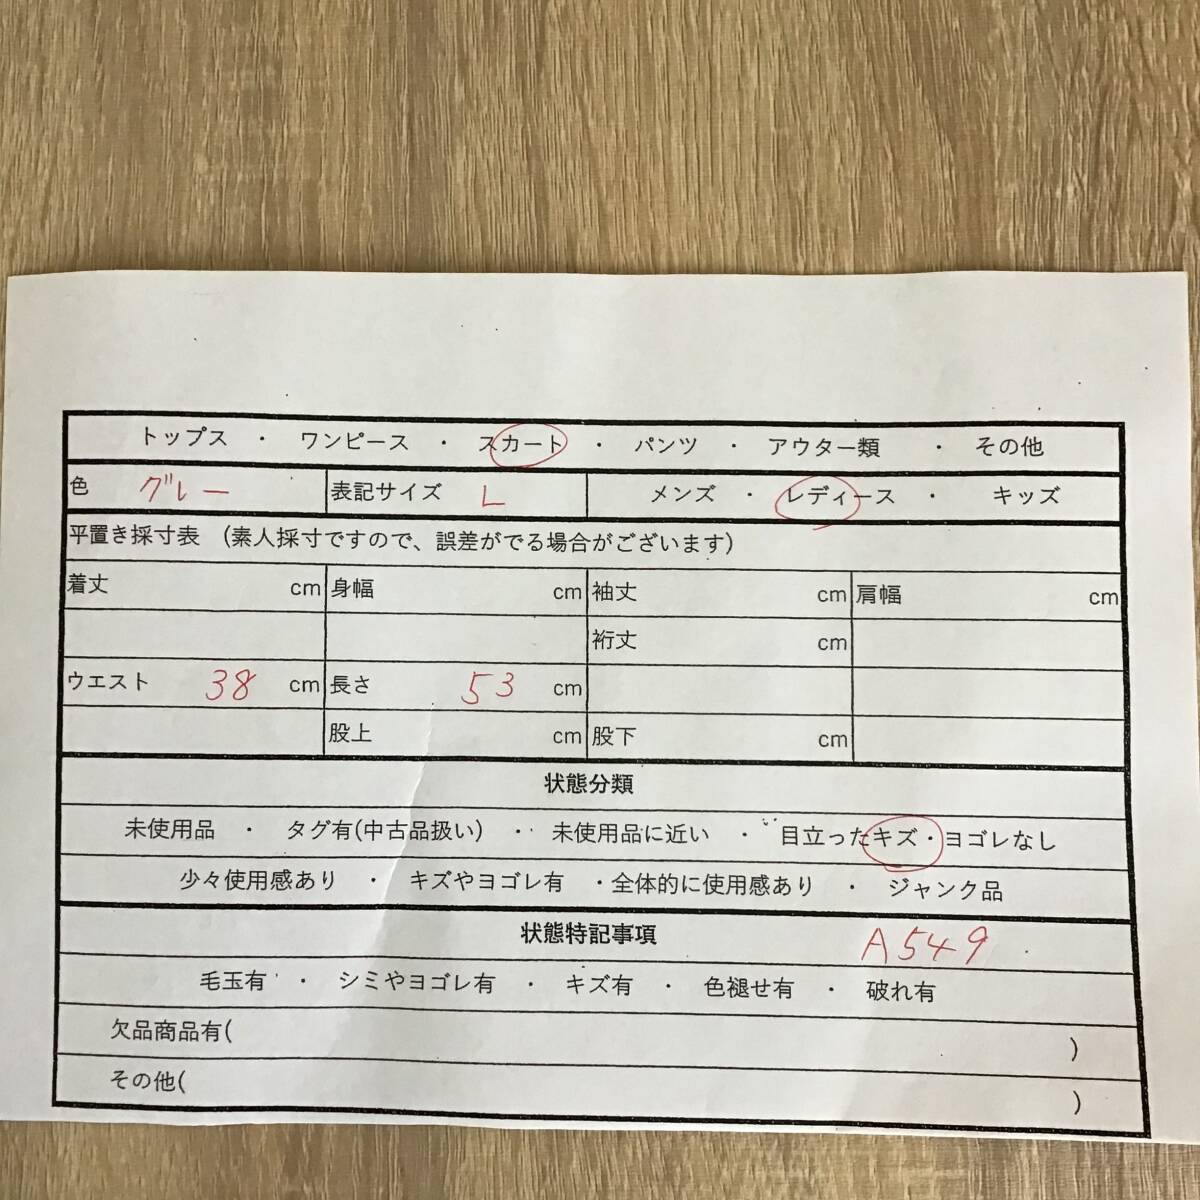 トップス ・ ワンピース ・ スカート ・ パンツ ・ アウター類 ・ その他
色 グレー 表記サイズ L メンズ ・ レディース ・ キッズ
平置き採寸表 (素人採寸ですので、誤差がでる場合がございます)
着丈 cm 身幅 cm 袖丈 cm 肩幅 cm
裄丈 cm
ウエスト 38 cm 長さ 53 cm
股上 cm 股下 cm
状態分類
未使用品 ・ タグ有(中古品扱い) ・ 未使用品に近い ・ 目立ったキズ・ヨゴレなし
少々使用感あり ・ キズやヨゴレ有 ・全体的に使用感あり ・ ジャンク品
状態特記事項 A549
毛玉有 ・ シミやヨゴレ有 ・ キズ有 ・ 色褪せ有 ・ 破れ有
欠品商品有( )
その他( )